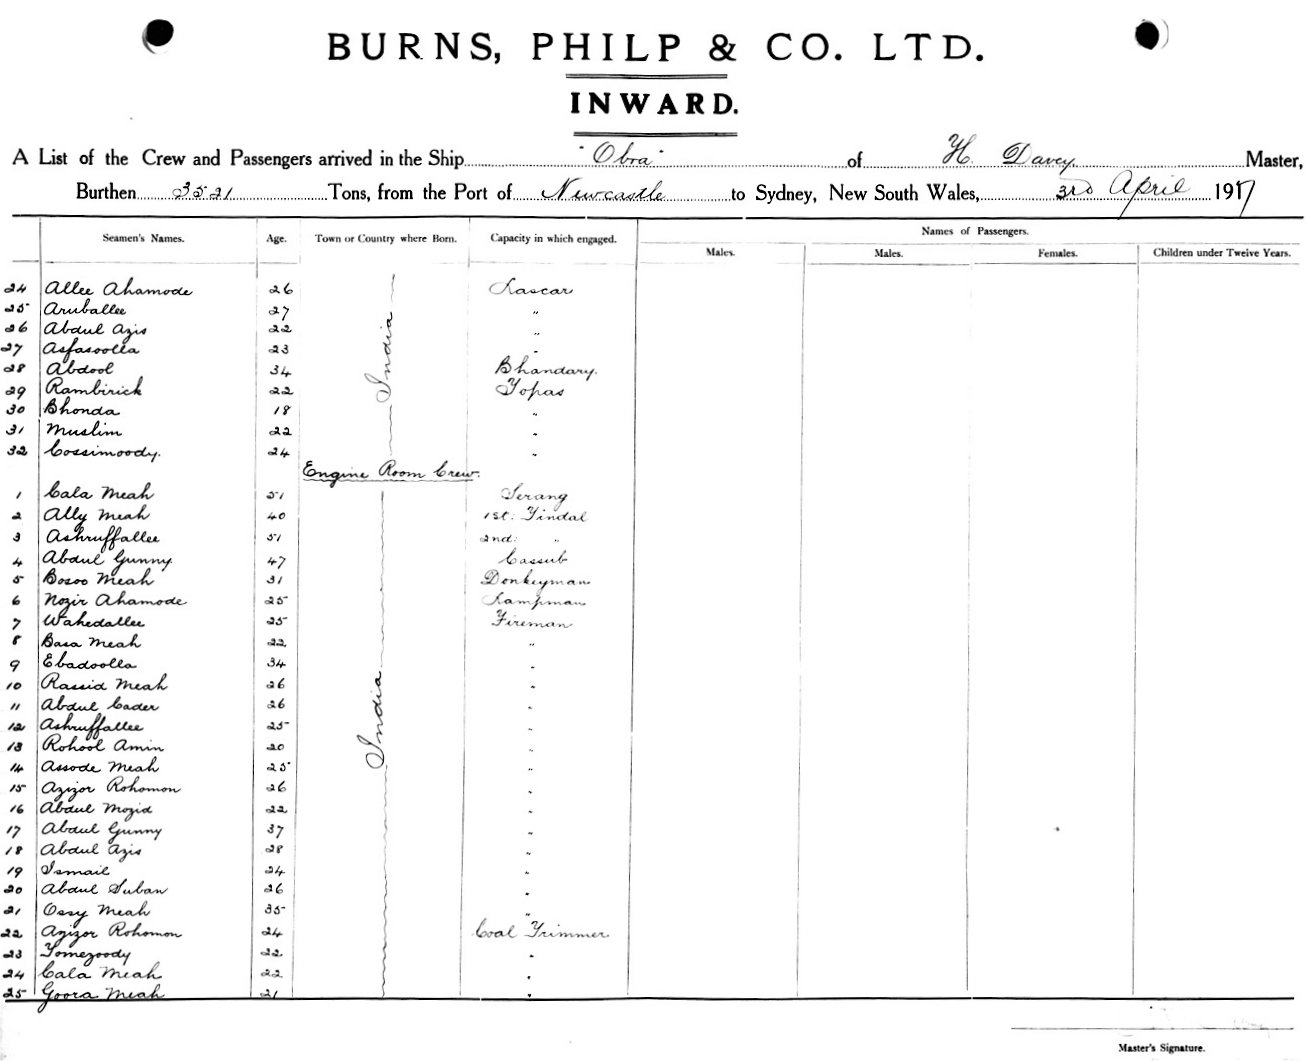 BURNS, PHILP & CO. LTD.
INWARD.
A List of the Crew and Passengers arrived in the Ship "Obra" of H. Davey Master,
Burthen 3521 Tons, from the Port of Newcastle to Sydney, New South Wales, 3rd April 1917
Names of Passengers.
Seamen's Names. Age. Town or Country where Born. Capacity in which engaged. Males. Males. Females. Children under Twelve Years.
24 Allee Ahamode 26 India Lascar
25 Aruballee 27 "
26 Abdul Azis 22 "
27 Asfasoolla 23 "
28 Abdool 34 Bhandary.
29 Rambirick 22 Topas
30 Bhonda 18 "
31 Muslim 22 "
32 Cossimoody. 24 "
Engine Room Crew.
1 Cala Meah 51 India Serang
2 Ally Meah 40 1st. Tindal
3 Ashruffallee 51 2nd. "
4 Abdul Gunny 47 Cassub
5 Bosoo Meah 31 Donkeyman
6 Nozir Ahamode 25 Lampman
7 Wahedallee 25 Fireman
8 Basa Meah 22 "
9 Ebadoolla 34 "
10 Rassid Meah 26 "
11 Abdul Cader 26 "
12 Ashruffallee 25 "
13 Rohool Amin 20 "
14 Assode Meah 25 "
15 Azizor Rohomon 26 "
16 Abdul Mozid 22 "
17 Abdul Gunny 37 "
18 Abdul Azis 28 "
19 Ismail 24 "
20 Abdul Suban 26 "
21 Ossy Meah 35 "
22 Azizor Rohomon 24 Coal Trimmer
23 Tomezoody 22 "
24 Cala Meah 22 "
25 Goora Meah 21 "
Master's Signature.